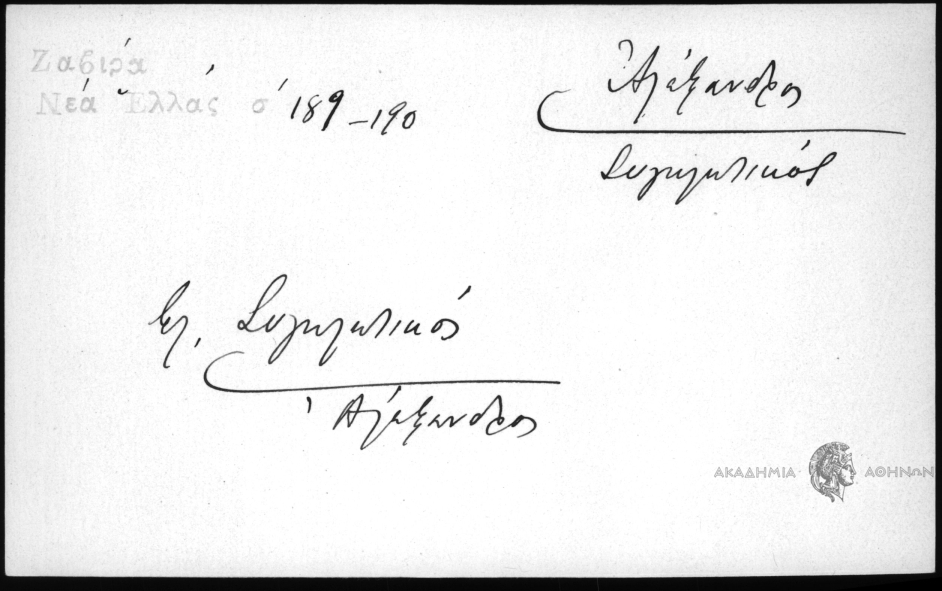 Ζαβιρά
Νέα Ἑλλάς σ 189-190
Ἀλέξανδρος
Συγκλητικός
βλ. Συγκλητικός
Ἀλέξανδρος
ΑΚΑΔΗΜΙΑ ΑΘΗΝΩΝ